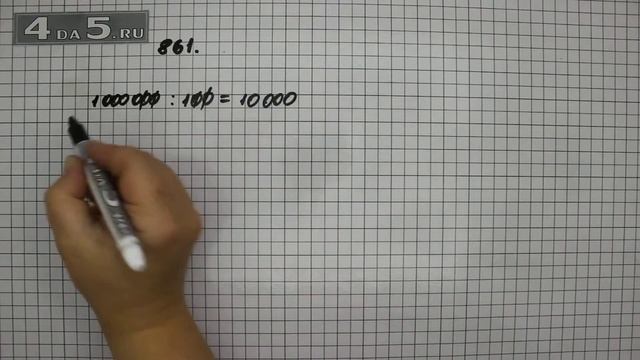 4 DA 5.RU
861.
1000000 : 100 = 10000